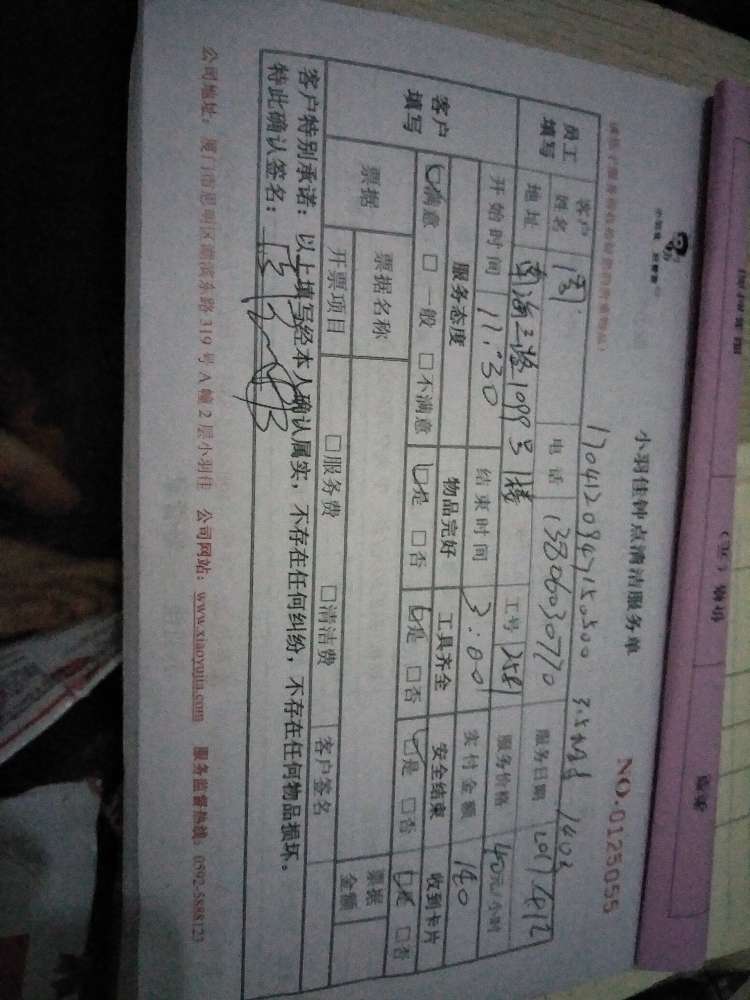 小羽佳钟点清洁服务单
NO.0125055
1704120947150500 3.5小时 140元
员工填写 客户姓名 周 电话 13806030770 服务日期 2017.4.12
地址 1099号1楼 工号 2581 服务价格 40元/小时
开始时间 11:30 结束时间 3:00 实付金额 140
客户填写 服务态度 物品完好 工具齐全 安全结束 收到卡片
☑满意 □一般 □不满意 ☑是 □否 ☑是 □否 ☑是 □否 ☑是 □否
票据 票据名称 客户签名 票据金额
开票项目 □服务费 □清洁费
客户特别承诺：以上填写经本人确认属实，不存在任何纠纷，不存在任何物品损坏。
特此确认签名：
公司地址：厦门市思明区湖滨东路319号A幢2层小羽佳 公司网站：www.xiaoyujia.com 服务监督热线：0592-5888123